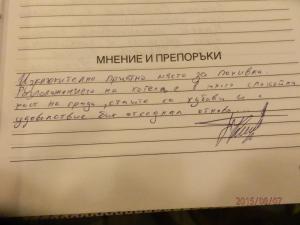 МНЕНИЕ И ПРЕПОРЪКИ
Изключително приятно място за почивка.
Разположението на хотела е в много спокойна
част на града, стаите са хубави и с
удоволствие бих отседнал отново
2015/06/07